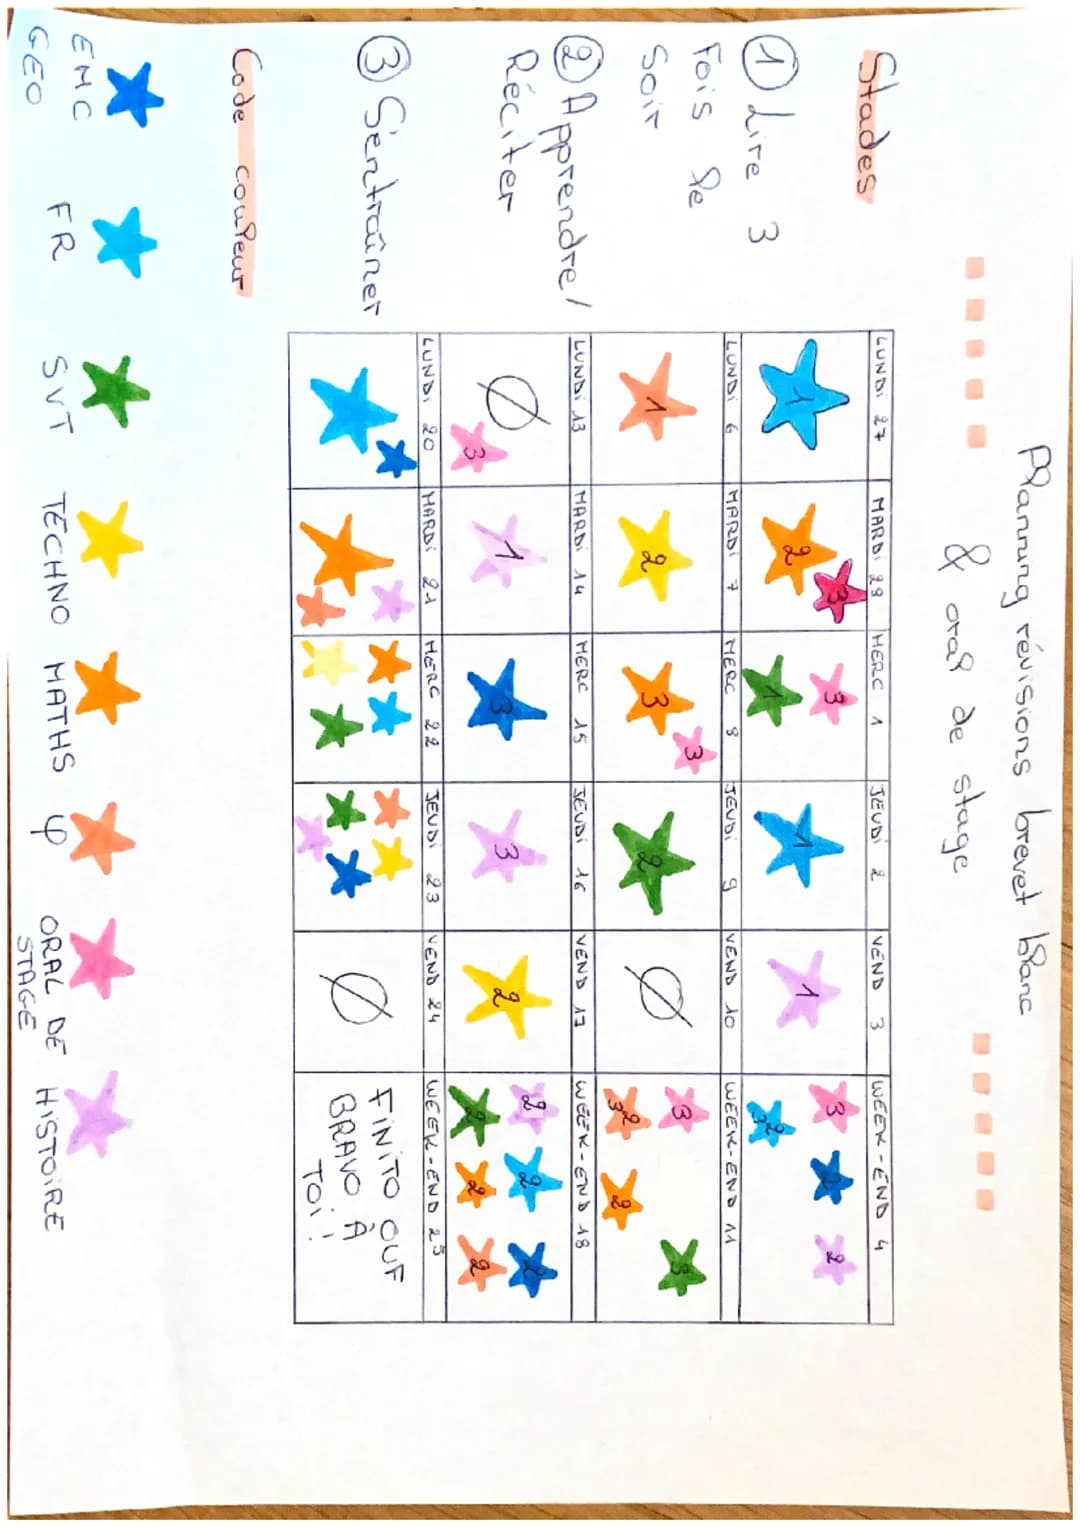 Planning révisions brevet blanc
& oral de stage
Stades
① Lire 3
fois le
soir
② Apprendre/
Réciter
③ S'entraîner
LUNDI 27 MARDI 28 MERC 1 JEUDI 2 VEND 3 WEEK-END 4
1 2 3 1 3 1 1 3 2 2
LUNDI 6 MARDI 7 MERC 8 JEUDI 9 VEND 10 WEEK-END 11
1 2 3 3 2 Ø 3 2 3 2 3
LUNDI 13 MARDI 14 MERC 15 JEUDI 16 VEND 17 WEEK-END 18
Ø 3 1 3 3 2 2 2 2 2 2 2
LUNDI 20 MARDI 21 MERC 22 JEUDI 23 VEND 24 WEEK-END 25
Ø
FINITO OUF
BRAVO À
TOI!
Code couleur
EMC
GEO
FR
SVT
TECHNO
MATHS
φ
ORAL DE
STAGE
HISTOIRE